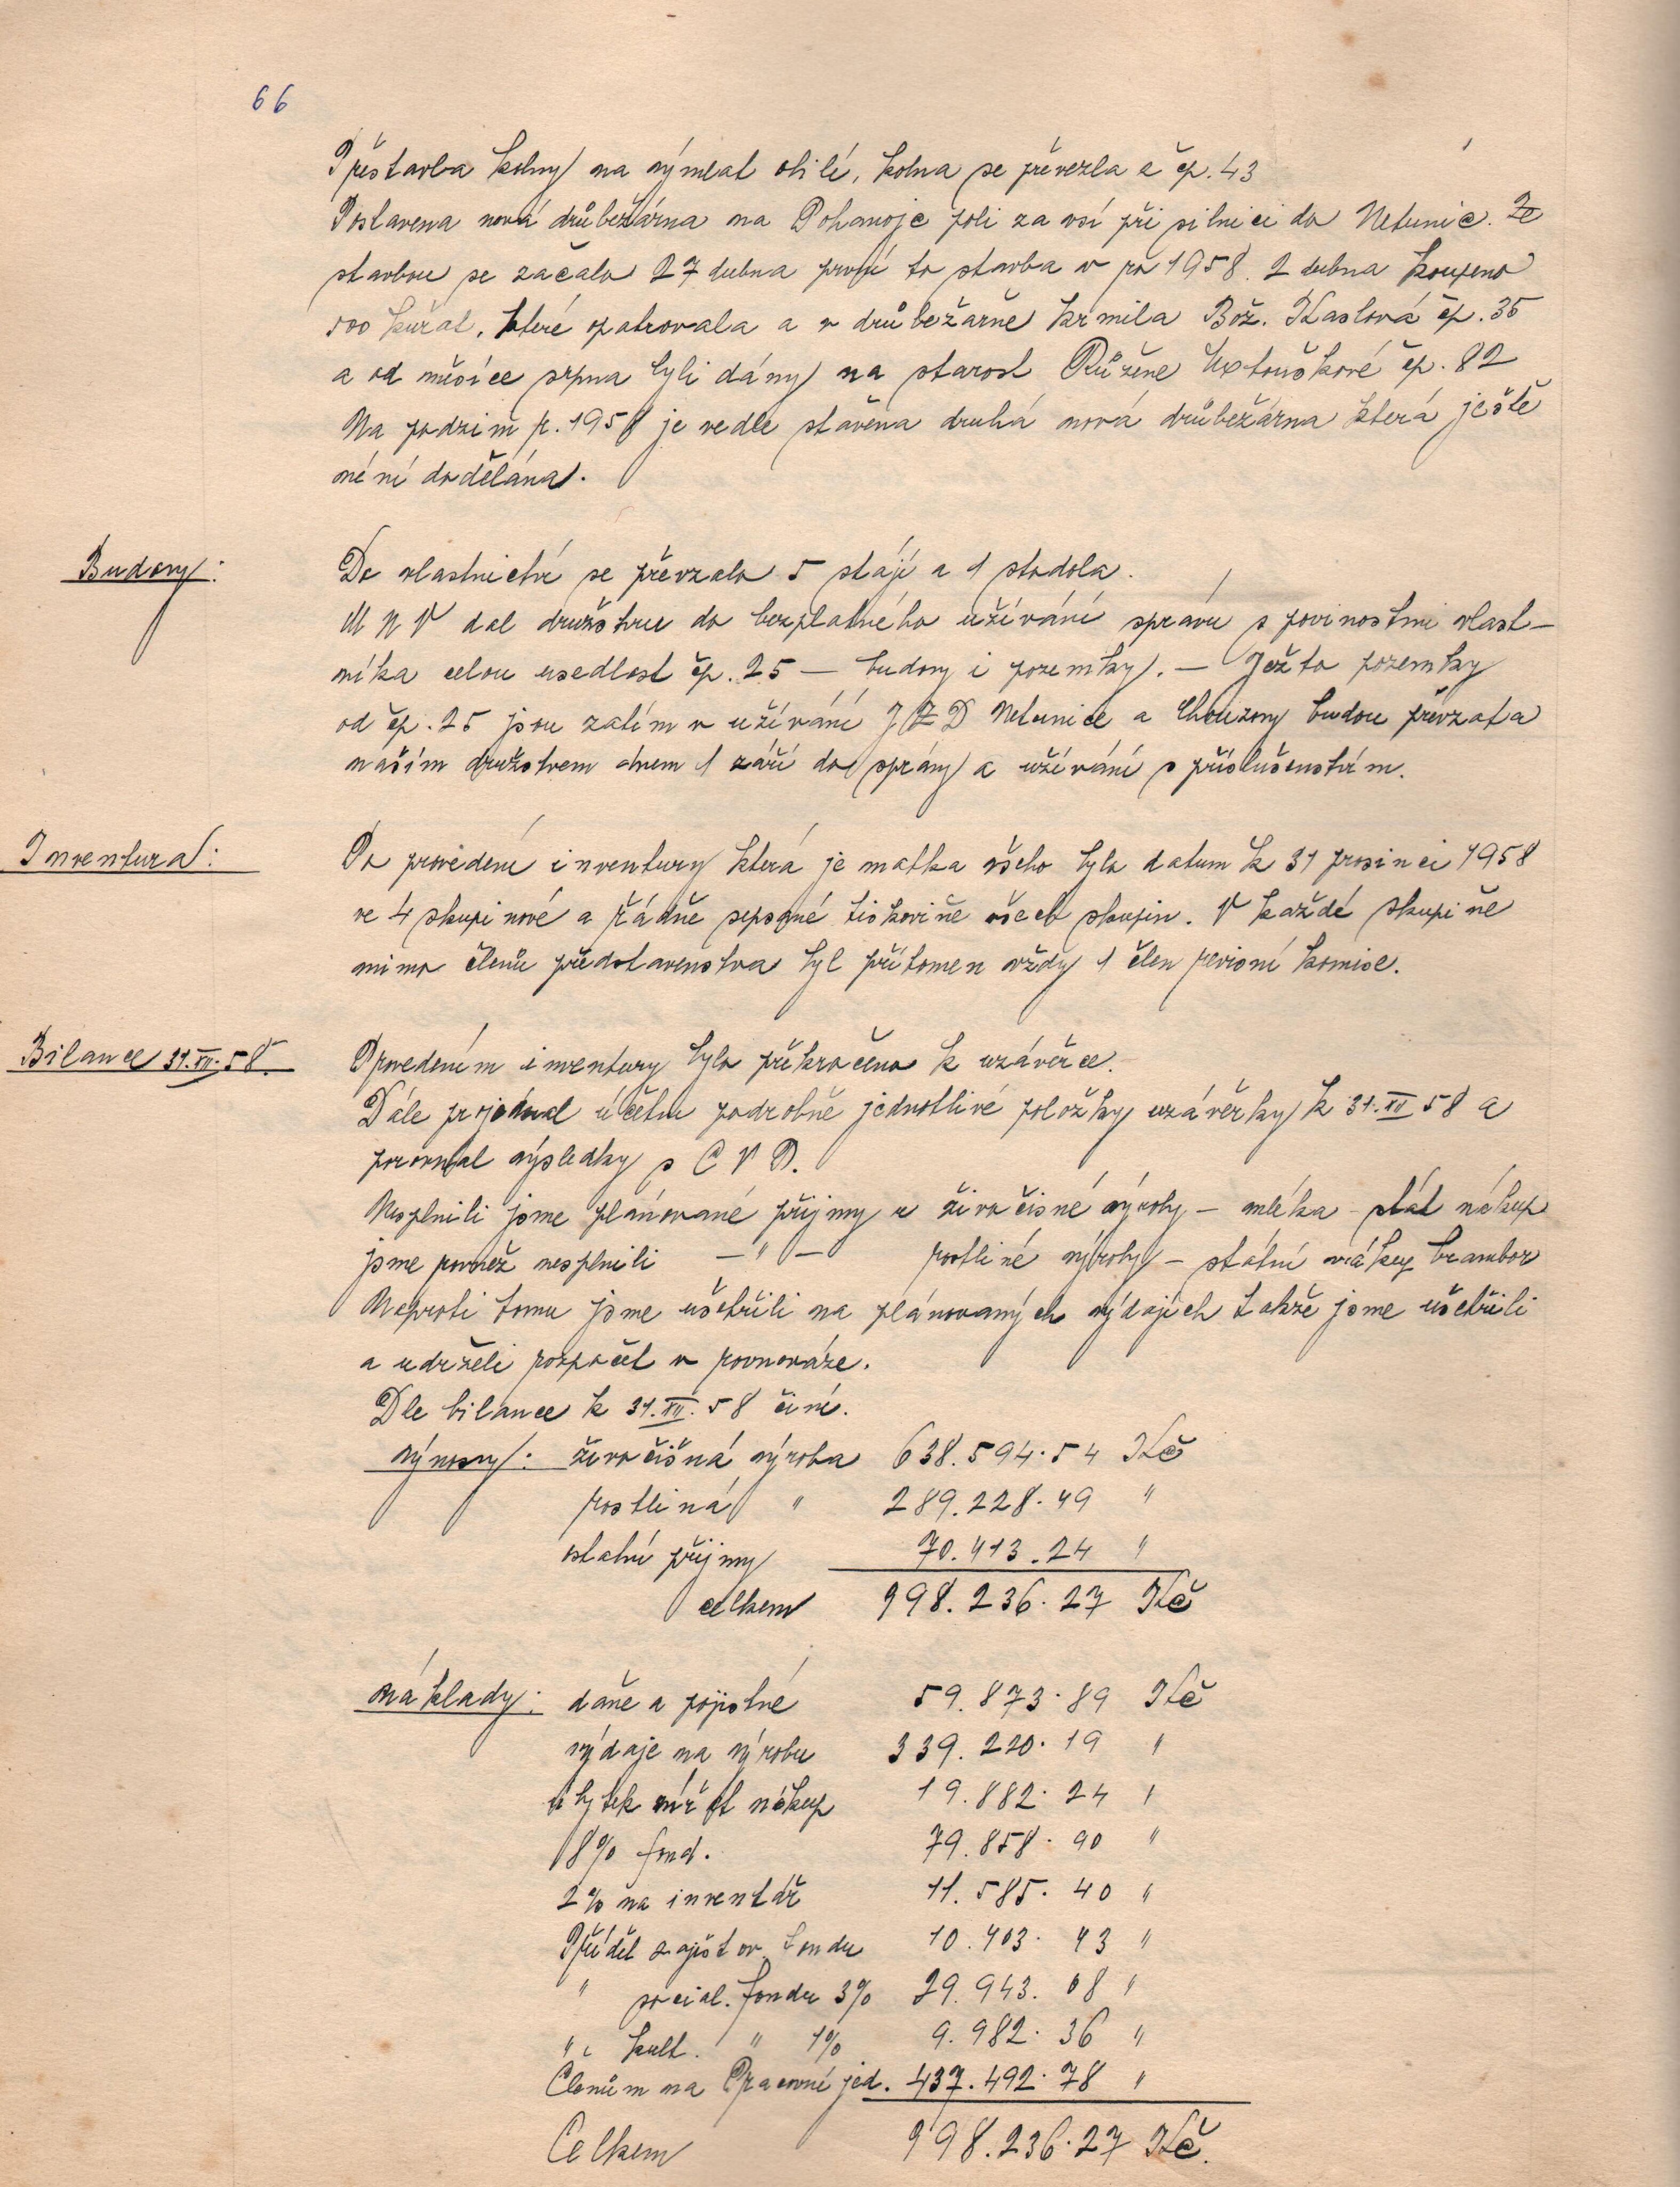 66
Přestavba kolny na výmlat obilí, kolna se převezla z čp. 43
Postavena nová drůbežárna na Pohanoje poli za vsí při silnici do Netunic. Ze
stavbou se začalo 27 dubna první to stavba v ro 1958. 2 dubna koupeno
500 kuřat, které opatrovala a v drůbežarně krmila Bož. Kaslová čp. 35
a od měsíce srpna byli dány na starost Růžene čp. 82
Na podzim r. 1958 je vedle stavěna druhá nová drůbežárna která ješte
není dodělána.
Budovy: Do vlastnictví se převzalo 5 stájí a 1 stodola.
M N V dal družstvu do bezplatného užívání správu s povinostmi vlast-
níka celou usedlost čp. 25 — budovy i pozemky. — Ježto pozemky
od čp. 25 jsou zatím v užívání JZD Netunice a Chouzovy budou převzata
našim družstvem dnem 1 září do správy a užívání s příslušenstvím.
Inventura: Po provedení inventury která je matka všeho bylo datum k 31 prosinci 1958
ve 4 skupinové a řádně sepsané tiskovině všech skupin. V každé skupině
mimo členů představenstva byl přítomen vždy 1 člen revisní komise.
Bilance 31.XII.58. Provedením inventury bylo překročeno k uzávěrce.
Dále projednal účetní podrobně jednotlivé položky uzávěrky k 31.XII 58 a
porovnal výsledky s C V P.
Nesplnili jsme plánované příjmy u živočisné výroby — mléka - stát nákup
jsme rovněž nesplnili — " — rostliné výroby — státní nákup brambor
Naproti tomu jsme ušetřili na plánovaných výdajích takže jsme ušetřili
a udrželi rozpočet v rovnováze.
Dle bilance k 31.XII.58 činí.
výnosy: živočišná výroba 638.594.54 Kčs
rostliná " 289.228.49 "
ostatní příjmy 70.413.24 "
celkem 998.236.27 Kčs
náklady: daně a pojistné 59.873.89 Kčs
výdaje na výrobu 339.220.19 "
úbytek nákup 19.882.24 "
8% fond. 79.858.90 "
2% na inventář 11.585.40 "
Příděl zajišťov. fondu 10.403.43 "
" social. fondu 3% 29.943.08 "
" kult. " 1% 9.982.36 "
Členům na Pracovní jed. 437.492.78 "
Celkem 998.236.27 Kčs.